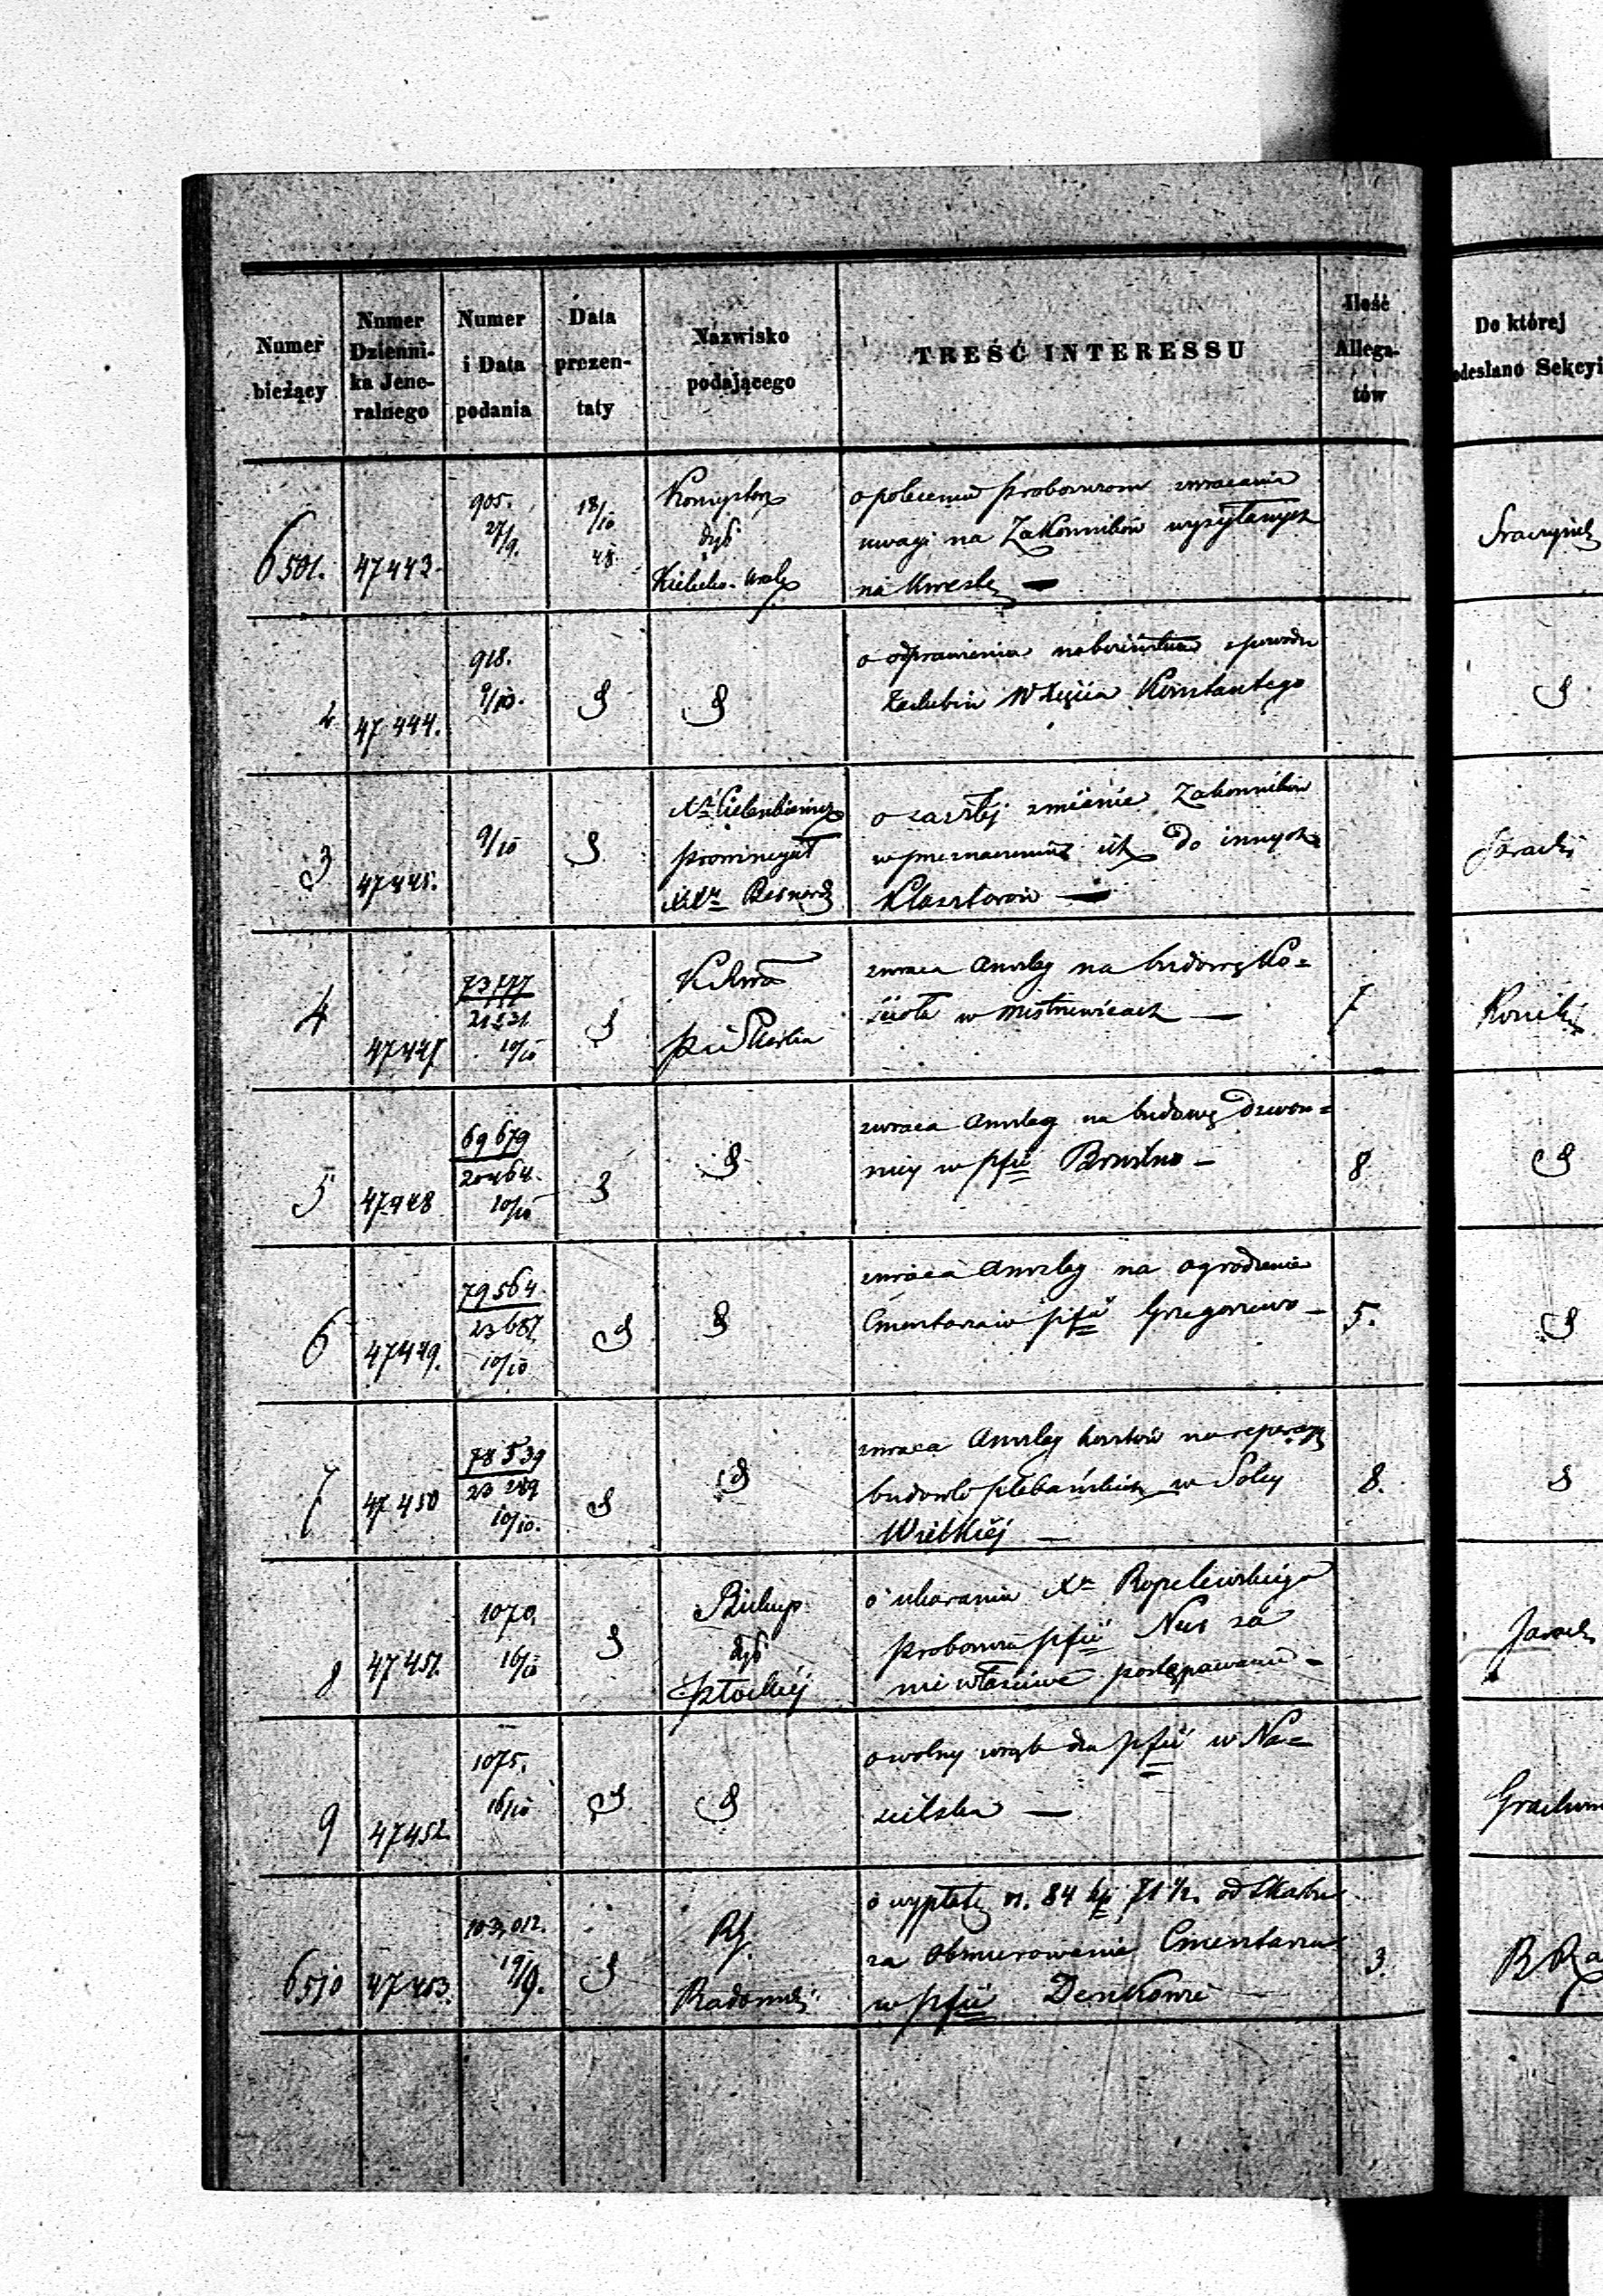 Numer bieżący
Nnmer Dzienni-ka Jene-ralnego
Numer i Data podania
Data prezen-taty
Nazwisko podającego
TREŚĆ INTERESSU
Ilość Allega-tów
Do której odesłano Sekcyi
6501. 47443.
905. 27/9.
18/10 48.
Konsystorz
dyb
o poleceniu proboszczom zwracania
uwagi na Zakonników wysyłanych
na kwestę —
2 47444.
918. 9/10.
o odprawieniu nabożeństwa z powodu
Zaślubin W Xięcia Konstantego
3 47445.
9/10
prowincyał
XXn Bernard
o częstej zmianie Zakonników
w przeznaczeniu ich do innych
Klasztorów —
4 47447
73777
21931
10/10
zwraca Anszlag na budowę Ko=
ścioła w Mistrzewicach —
7
5 47448
69679
20464.
10/10
zwraca Anszlag na budowę dzwon=
nicy w pfii Brudno —
8
6 47449.
79564.
23687.
10/10
zwraca Anszlag na ogrodzenie
Cmentarza w pfii Grzegorzewo —
5.
7 47450
78539
23289
10/10.
zwraca Anszlag kosztów na reperacyę
budowli plebańskich w Solcy
Wielkiéj —
8.
8 47451.
1070.
16/10
Biskup
dyb
płockiéj
o ukaranie Xa Ropelewskiego
proboszcza pfii Nur za
nie właściwe postępowanie —
9 47452
1075.
16/10
o wolny wrąb dla pfii w Na=
sielsku —
6510 47453.
103,012.
19/9.
RG.
Radomski
o wypłatę rs. 84 kp 71 1/2. od Skarbu
za Obmurowanie Cmentarza
w pfii Denkowie
3.